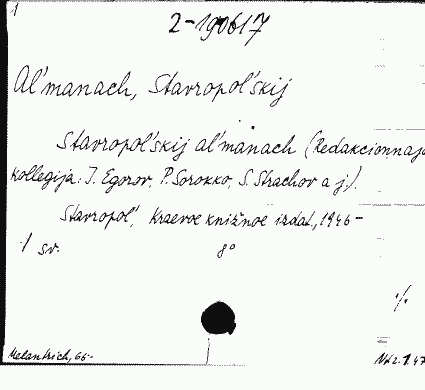 1
2-190617
Al'manach, Stavropol'skij
Stavropol'skij al'manach (Redakcionnaja
kollegija: I. Egorov, P. Sorokko, S. Strachov a j.).
Stavropol', Kraevoe knižnoe izdat., 1946-
1 sv. 8°
./.
Melantrich, 66.-